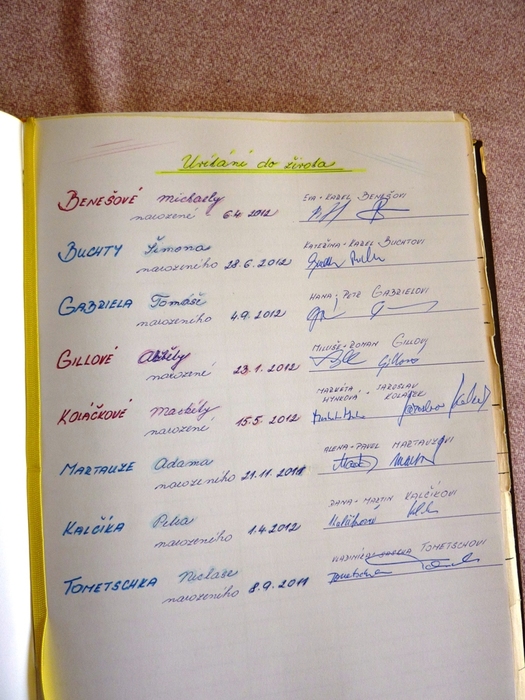 Vítání do života
BENEŠOVÉ Michaely EVA - KAREL BENEŠOVI
narozené 6.4. 2012
BUCHTY Šimona KATEŘINA - KAREL BUCHTOVI
narozeného 28.6.2012
GABRIELA Tomáše HANA - PETR GABRIELOVI
narozeného 4.9.2012
GILLOVÉ MILUŠE - ROMAN GILLOVI
narozené 23.1.2012 Gillová
KOLÁČKOVÉ Markéty MARKÉTA HYNKOVÁ - JAROSLAV KOLÁČEK
narozené 15.5.2012
MARTAUZE Adama ALENA - PAVEL MARTAUZOVI
narozeného 21.11.2011
KALČÍKA Petra DANA - MARTIN KALČÍKOVI
narozeného 1.4.2012 Kalčíková
TOMETSCHKA TOMETSCHOVI
narozeného 8.9.2011